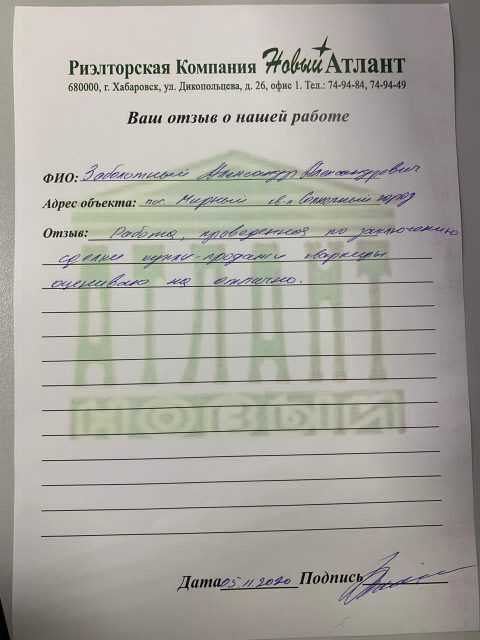 Риэлторская Компания Новый Атлант
680000, г. Хабаровск, ул. Дикопольцева, д. 26, офис 1. Тел.: 74-94-84, 74-94-49
Ваш отзыв о нашей работе
ФИО: Заболотный Александр Александрович
Адрес объекта: пос. Мирный кв-л Солнечный город
Отзыв: Работа, проведенная по заключению
сделки купли-продажи квартиры
оцениваю на отлично.
АТЛАНТ
НОВЫЙ
Дата 05.11.2020 Подпись